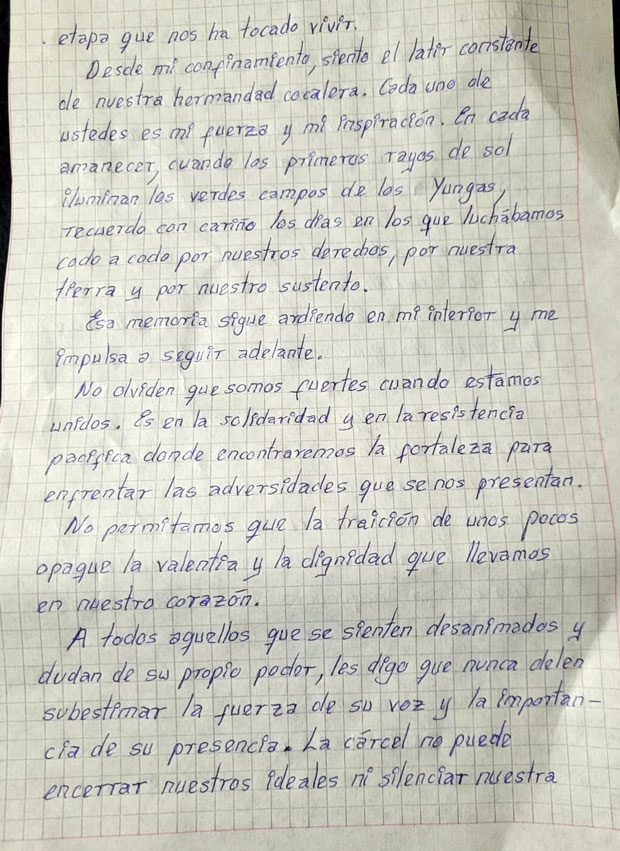 etapa que nos ha tocado vivir.
Desde mi confinamiento, siento el latir constante
de nuestra hermandad cocalera. Cada uno de
ustedes es mi fuerza y mi inspiración. En cada
amanecer, cuando los primeros rayos de sol
iluminan los verdes campos de los Yungas,
recuerdo con cariño los días en los que luchábamos
codo a codo por nuestros derechos, por nuestra
tierra y por nuestro sustento.
Esa memoria sigue ardiendo en mi interior y me
impulsa a seguir adelante.
No olviden que somos fuertes cuando estamos
unidos. Es en la solidaridad y en la resistencia
pacífica donde encontraremos la fortaleza para
enfrentar las adversidades que se nos presentan.
No permitamos que la traición de unos pocos
opaque la valentía y la dignidad que llevamos
en nuestro corazón.
A todos aquellos que se sienten desanimados y
dudan de su propio poder, les digo que nunca deben
subestimar la fuerza de su voz y la importan-
cia de su presencia. La cárcel no puede
encerrar nuestros ideales ni silenciar nuestra